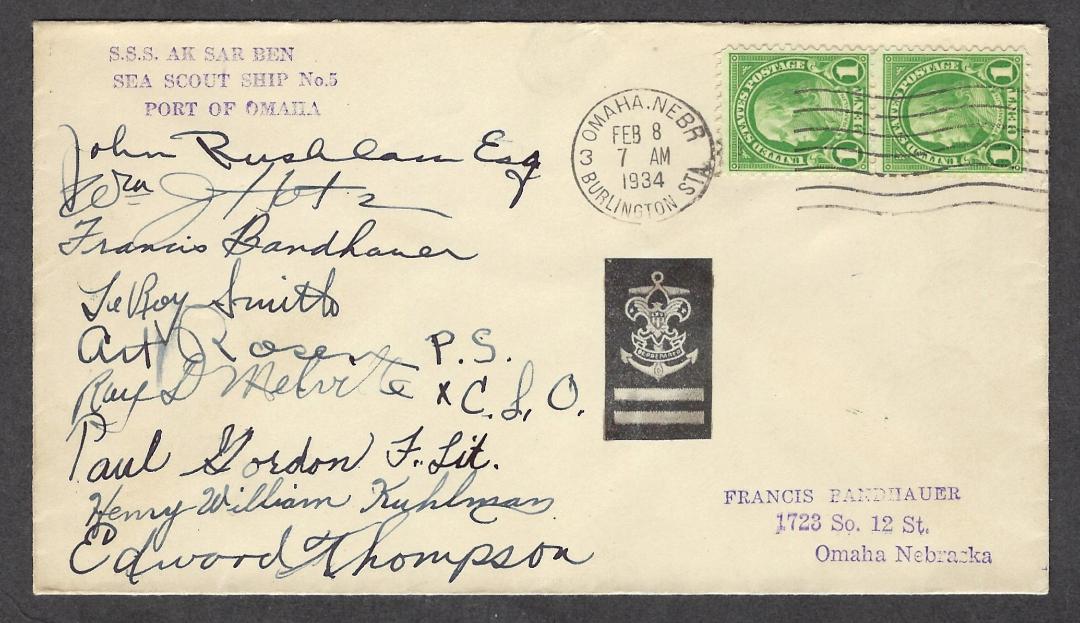 S.S.S. AK SAR BEN
SEA SCOUT SHIP No.5
PORT OF OMAHA
John Rushlau Esq
Wm J Hotz
Francis Bandhauer
LeRoy Smith
Art Rosen P.S.
Ray D x C.S.O.
Paul Gordon F. Lit.
Henry William Kuhlman
Edward Thompson
OMAHA. NEBR
FEB 8
7 AM
1934
3 BURLINGTON STA.
STATES POSTAGE
1 1
FRANKLIN
STATES POSTAGE
1 1
FRANKLIN
BE PREPARED
FRANCIS BANDHAUER
1723 So. 12 St.
Omaha Nebraska